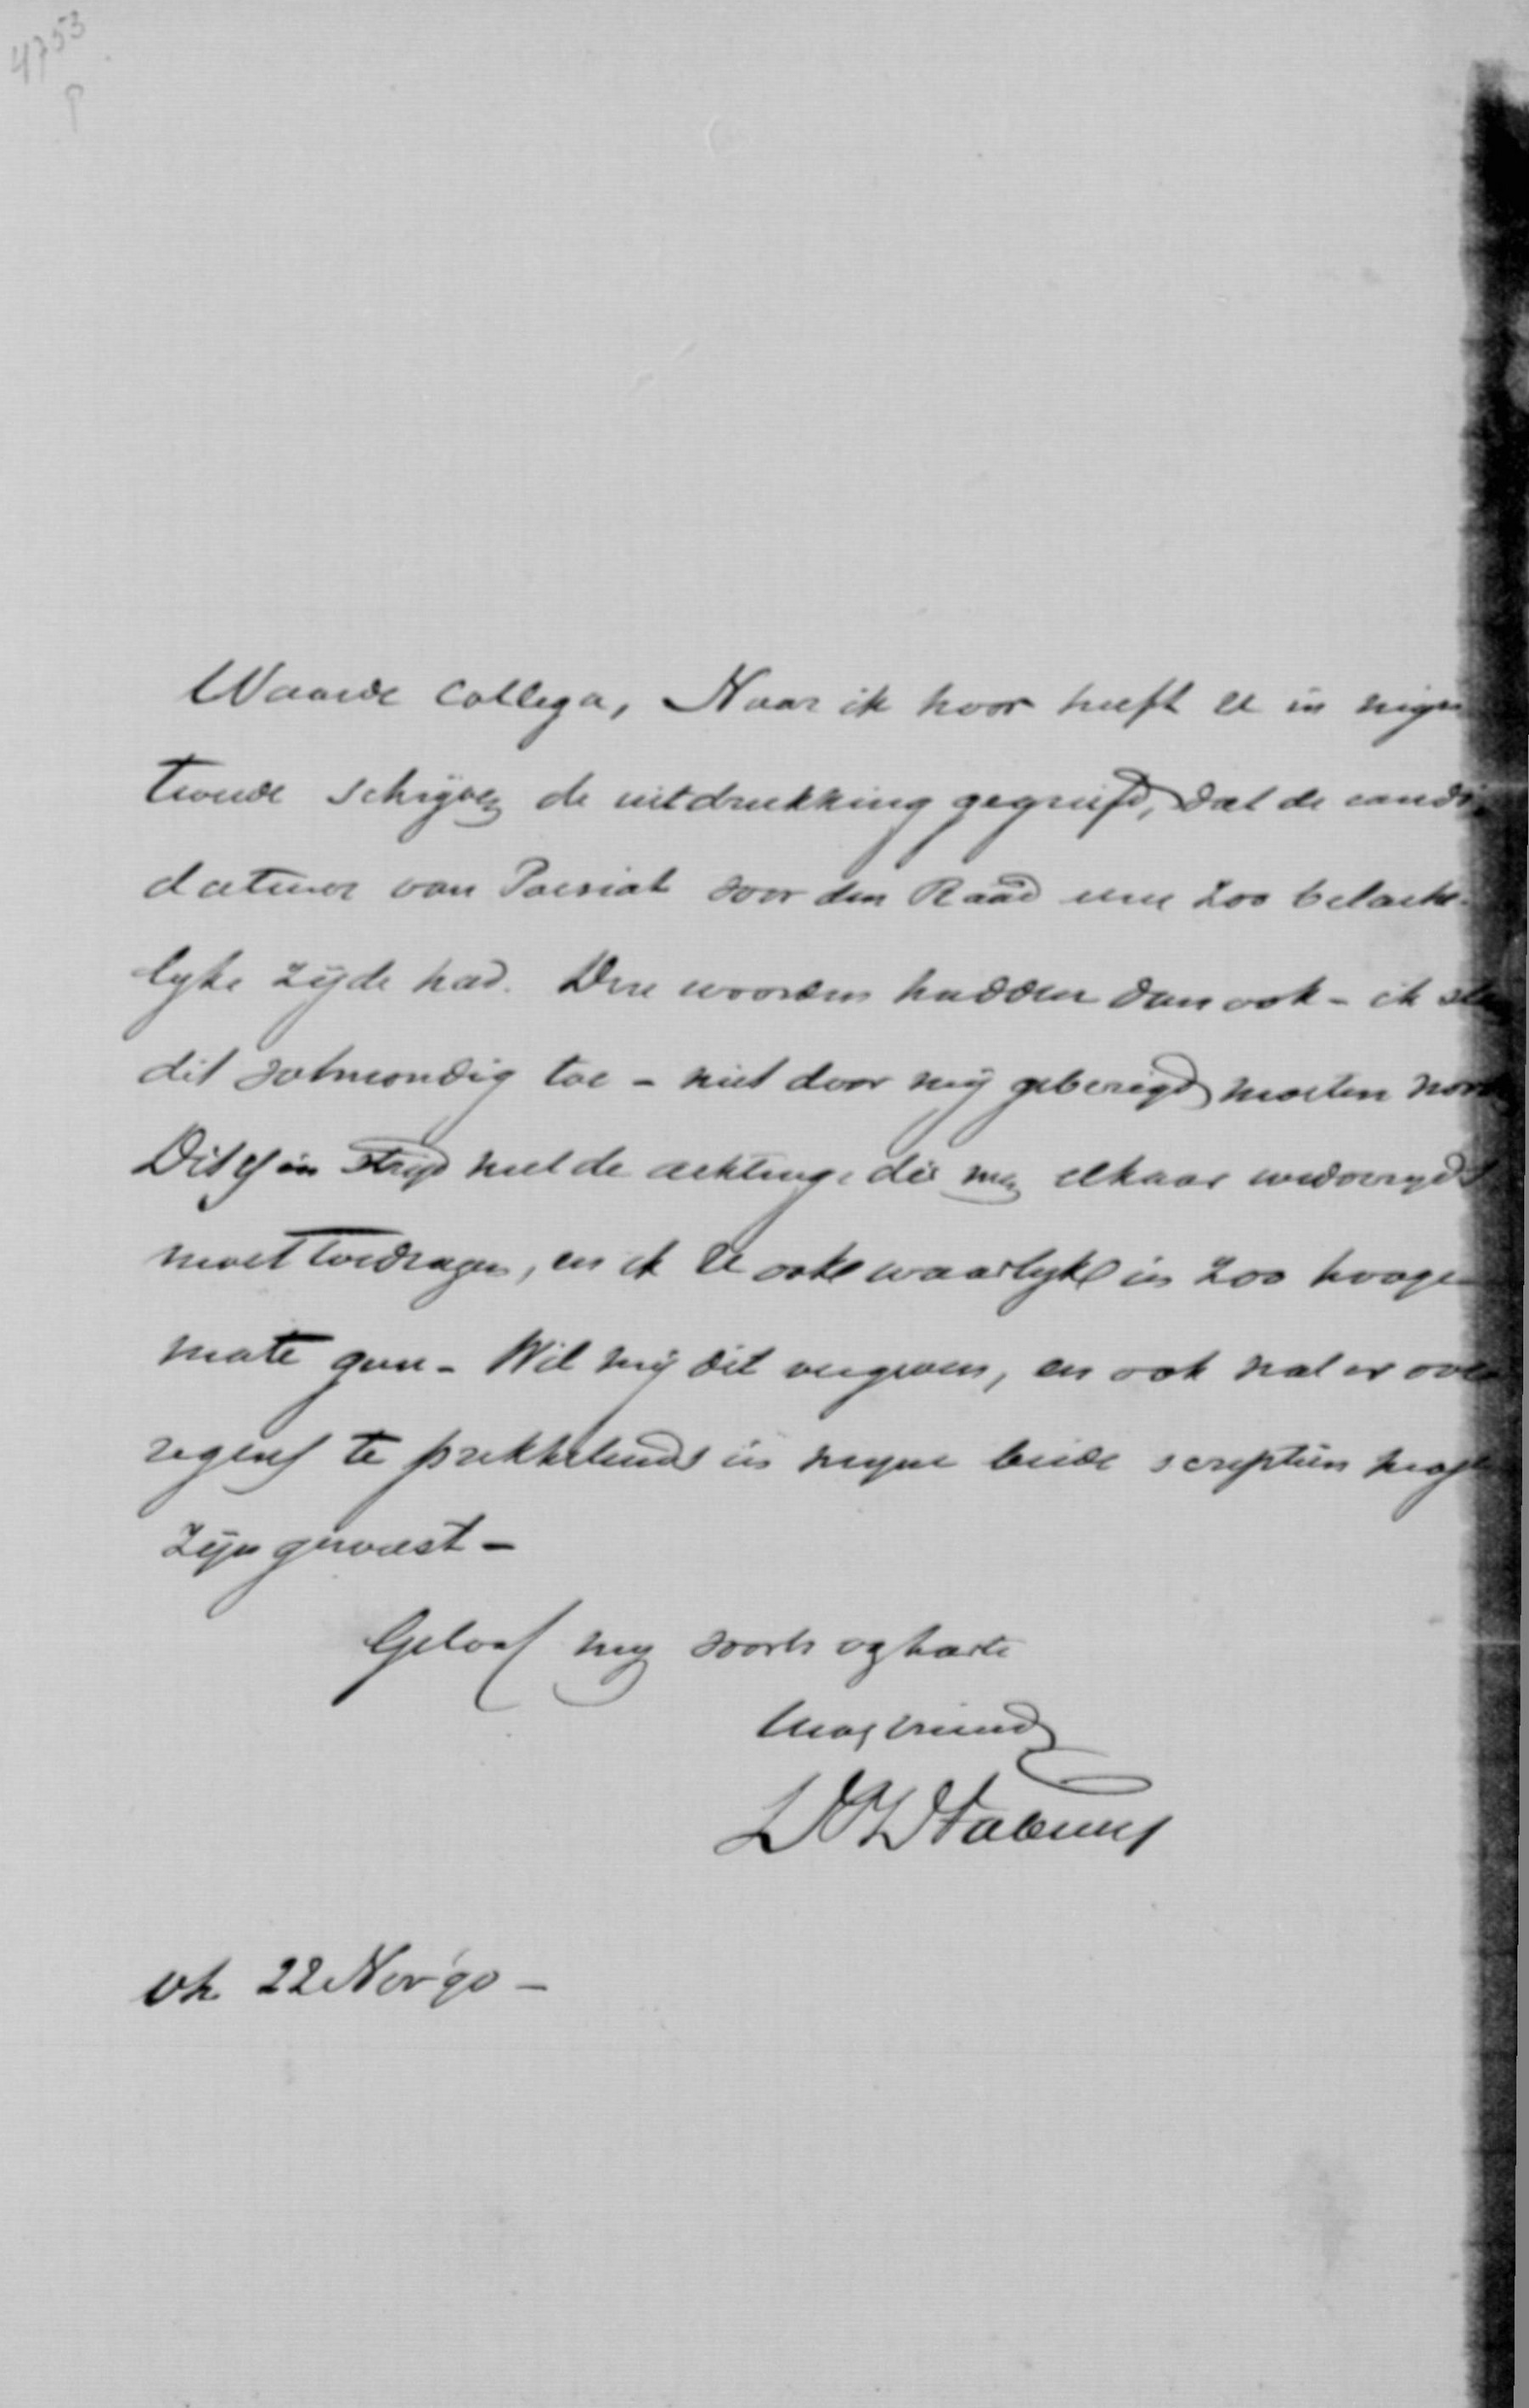 4753
Waarde Collega, Naar ik hoor heeft U in mijn
tweede schrijven de uitdrukking gegriefd, dat de candi-
datuur van voor den Raad eene zoo belache-
lyke zyde had. Deze woorden hadden dan ook - ik sta
dit volmondig toe - niet door mij gebezigd moeten word
Dit is in stryd met de achting, die men elkaar wederzyds
moet toedragen, en ik U ook waarlyk in zoo hooge
mate gun - Wil mij dit vergeven, en ook wat er ove
rigens te prikkelends in mijne beide scriptiën mogt
zijn geweest -
Geloof mij voorts ogharte
Uwe vriend
22 Nov '90 -